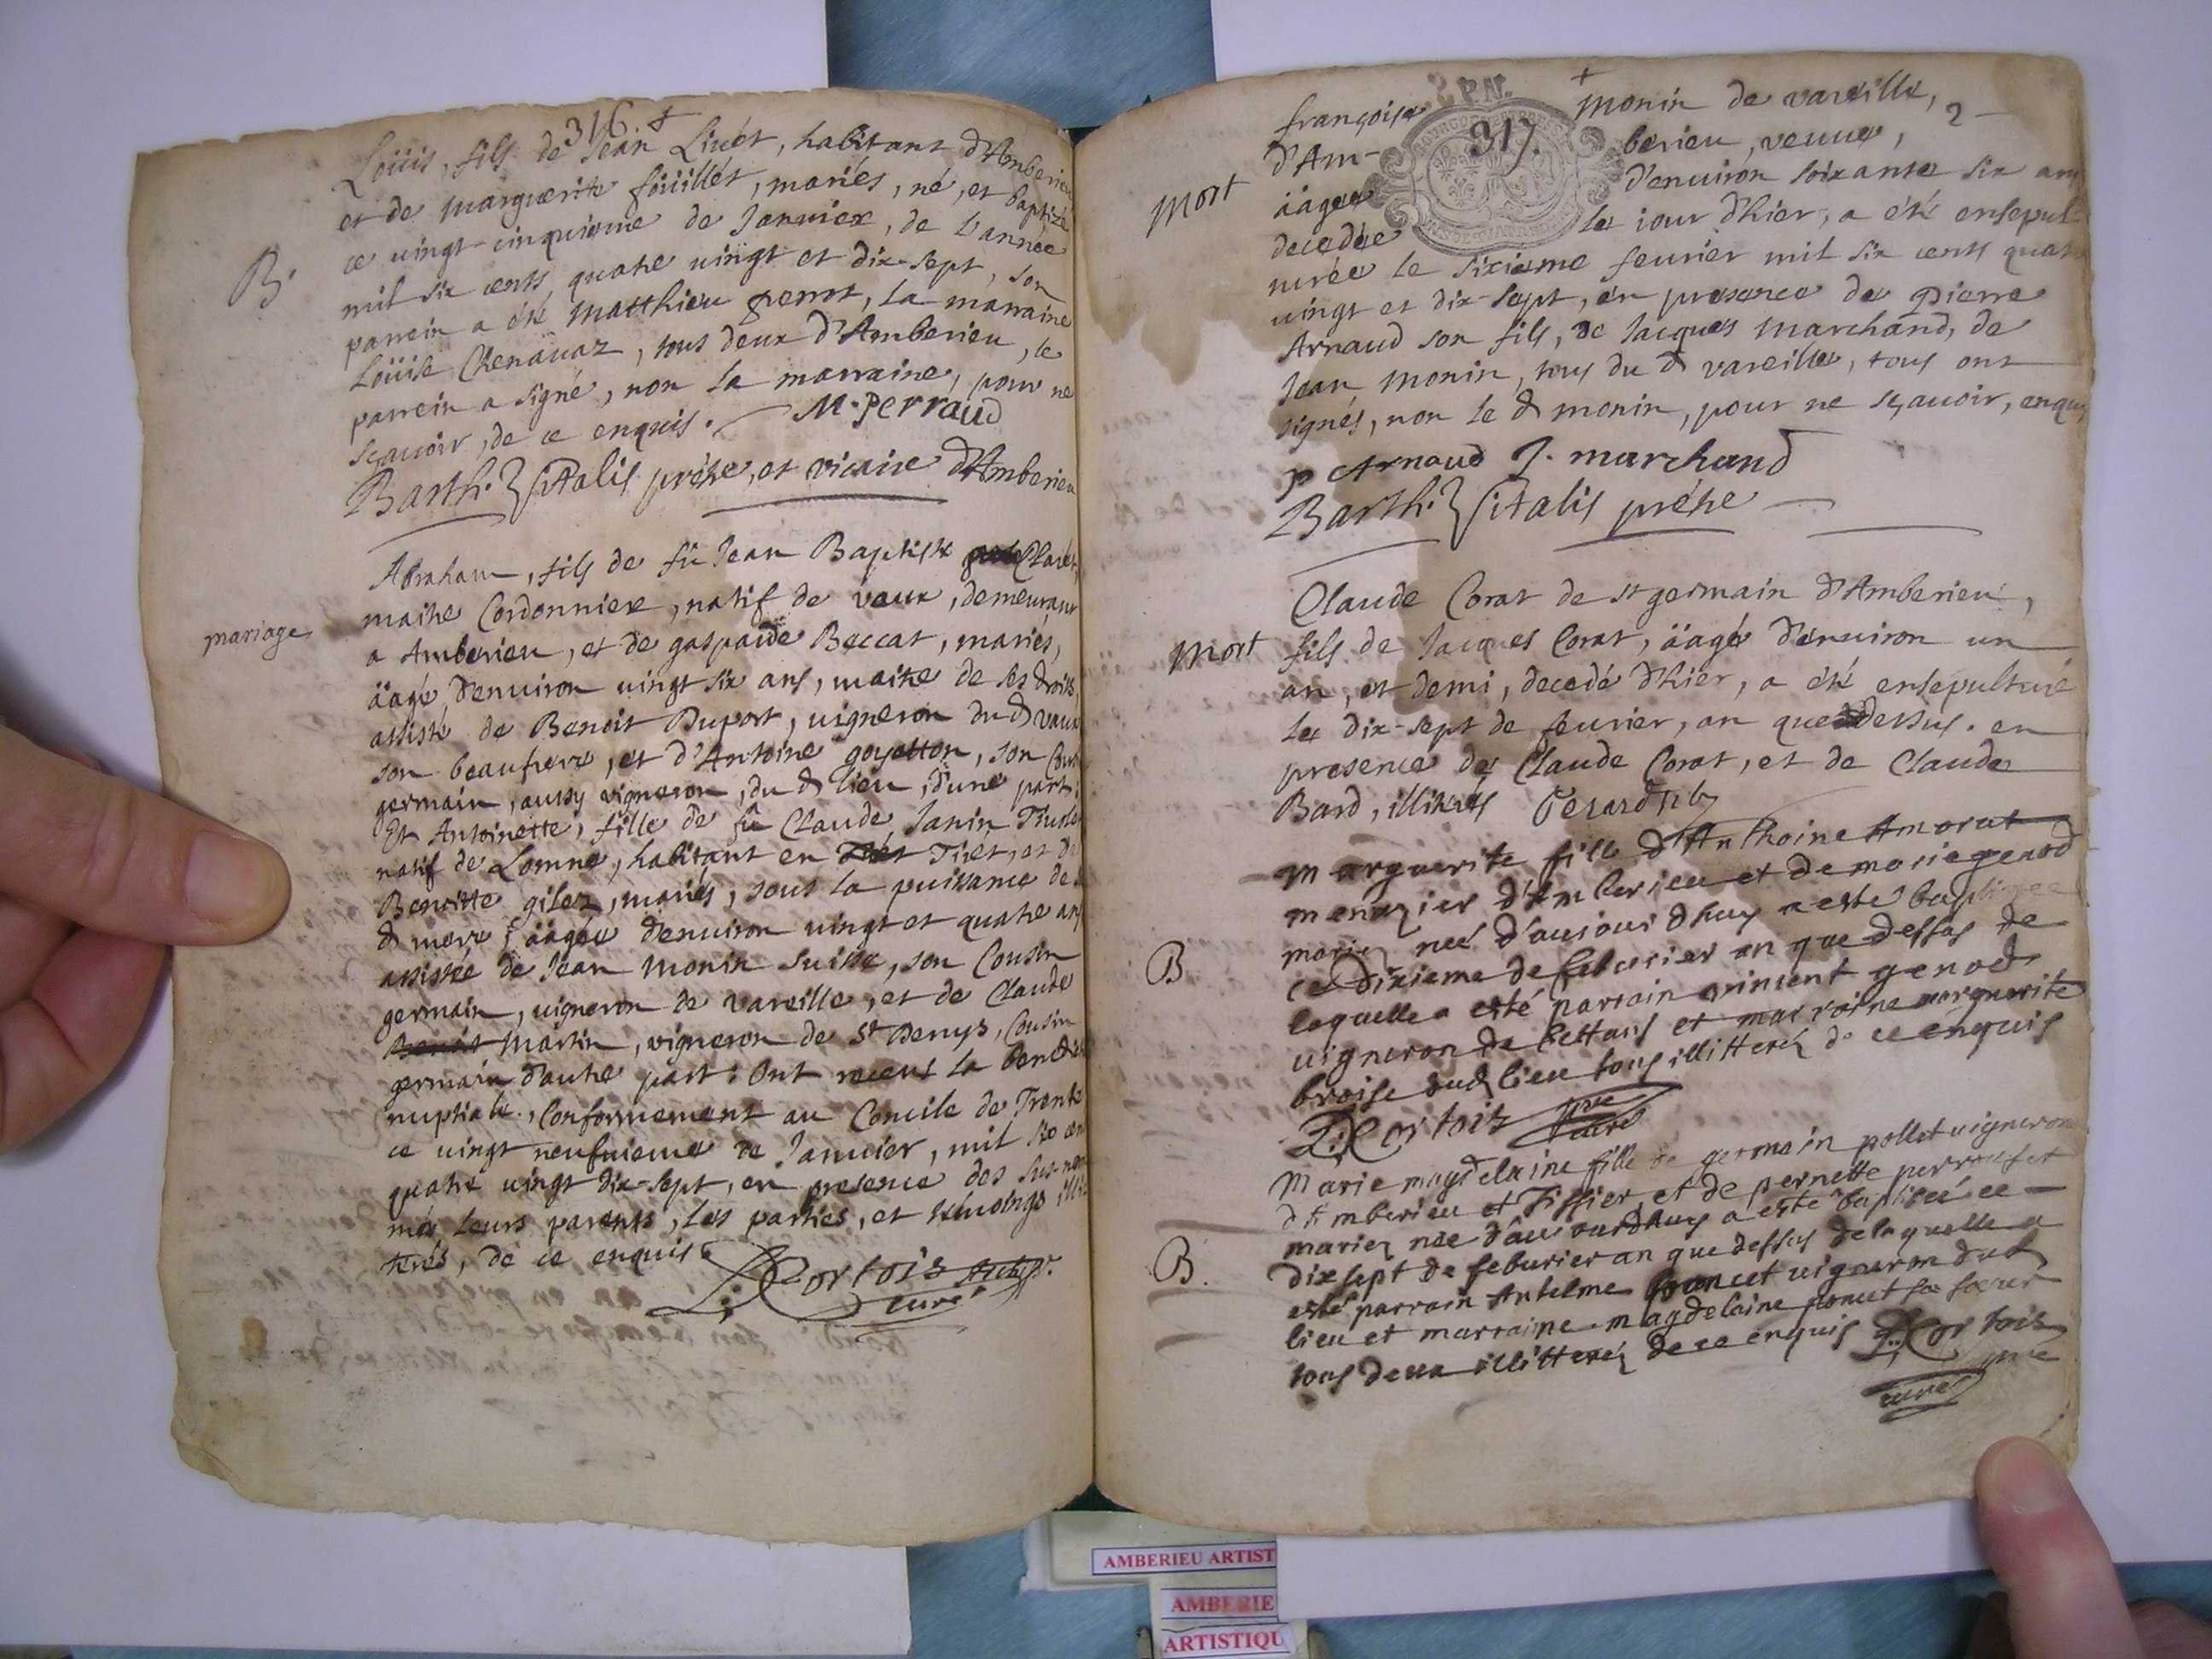 316 +
Loüis, fils de Jean Livet, habitant d'Amberieu
et de marguerite foüillet, mariés, né, et baptizé
B.
ce vingt-cinquieme de Janvier, de l'année
mil six cents quatre vingt et dix-sept, son
parrein a été Matthieu perrot, la marraine
Loüise Chenavaz, tous deux d'Amberieu, le
parrein a signé, non la marraine, pour ne
sçavoir, de ce enquis. M. Perraud
Barth. Vitalis prêtre, et vicaire d'Amberieu
Abraham, fils de fû Jean Baptiste
maitre Cordonnier, natif de vaux, demeurant
mariage
a Amberieu, et de gasparde Beccat, mariés,
äagé d'environ vingt six ans, maitre de ses droits,
assisté de Benoit Duport, vigneron du d vaux
son beaufrere, et d'Antoine goyetton, son
germain, aussy vigneron, du d lieu, d'une part,
Et Antoinette, fille de fû Claude Janin
natif de Lomne, habitant en Tiret, et de
Benoitte gilez, mariés, sous la puissance de
d mere, äagée d'environ vingt et quatre ans
assistée de Jean Monin Suisse, son Cousin
germain, vigneron de vareille, et de Claude
Benoit Martin, vigneron de St Denys, Cousin
germain d'autre part. Ont receus la
nuptiale, Conformement au Concile de Trente
ce vingt neufvieme de Janvier, mil six
quatre vingt dix-sept, en presence des sus-nom
més leurs parents, les parties, et temoings illi
terés, de ce enquis. Cortois
curé
+
317.
2
françoise Monin de vareille,
d'Am- berieu, veuve,
mort
äagée d'environ soixante six ans
decedée le iour d'hier, a été ensepul-
turée le sixieme fevrier mil six cents quatre
vingt et dix-sept, en presence de Pierre
Arnaud son fils, de Jacques Marchand, de
Jean Monin, tous du d vareille, tous ont
signés, non le d monin, pour ne sçavoir, enquis
p Arnaud J. marchand
Barth. Vitalis prêtre
Claude Corat de st germain d'Amberieu,
mort
fils de Jacques Corat, äagé d'environ un
an, et demi, decedé d'hier, a été ensepulturé
le dix-sept de fevrier, an que dessus. en
presence de Claude Corat, et de Claude
Bard, illiterés
Marguerite fille d'Anthoine Amorat
menuzier d'Amberieu et de marie genod
mariez neé d'aujourdhuy a esté baptizee
B
ce dixieme de feburier an que dessus de
laquelle a esté parrain vincent genod
vigneron de bettans et marraine marguerite
broise dud lieu tous illitterez de ce enquis
Cortois
curé
Marie magdelaine fille de germain pollet vigneron
d'Amberieu et Tissier et de pernette
mariez née d'aujourdhuy a esté baptiseé ce
B.
dixsept de feburier an que dessus de laquelle a
esté parrain Antelme poncet vigneron dud
lieu et marraine magdelaine poncet sa soeur
tous deux illitterez de ce enquis Cortois
curé
AMBERIEU ARTIST
AMBERIE
ARTISTIQU